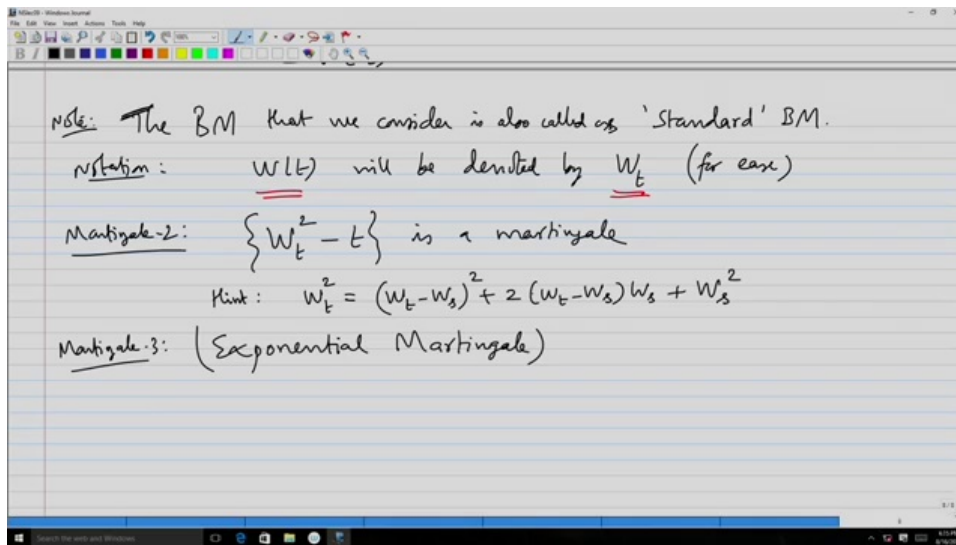 NSDec09 - Windows Journal
File Edit View Insert Actions Tools Help
B I
Note: The BM that we consider is also called as 'Standard' BM.
Notation: W(t) will be denoted by W_t (for ease)
Martingale-2: {W_t^2 - t} is a martingale
Hint: W_t^2 = (W_t - W_s)^2 + 2 (W_t - W_s) W_s + W_s^2
Martingale-3: (Exponential Martingale)
Search the web and Windows